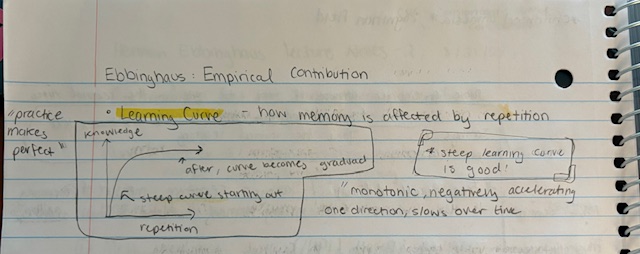 Ebbinghaus: Empirical Contribution
"practice makes perfect"
• Learning Curve - how memory is affected by repetition
knowledge
↑ after, curve becomes gradual
↖ steep curve starting out
repetition
* steep learning curve
is good!
"monotonic, negatively accelerating
one direction, slows over time